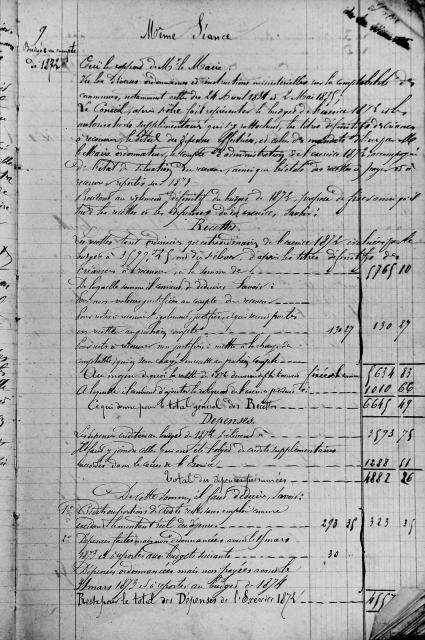 Même Séance
9
Budget en compte
de 1872
Ouï le rapport de Mr le Maire;
Vu les diverses ordonnances et instructions ministérielles sur la comptabilité des
communes, notamment celles des 24 Avril 1834 et 2 Mai
Le Conseil, après s'être fait représenter le budget de l'exercice 1872 et les
autorisations supplémentaires qui s'y rattachent, les titres définitifs de créances
à recouvrer, le détail des dépenses effectuées, et celui des mandats délivrés par Mr
le Maire ordonnateur, le compte d'administration de l'exercice 1872 accompagné
de l'état de situation du receveur, ainsi que l'état des restes à payer et à
recouvrer reportés sur 1873
Procédant au règlement définitif du budget de 1872, propose de fixer ainsi qu'il
suit les recettes et les dépenses dudit exercice, Savoir:
Recettes.
Les recettes tant ordinaires qu'extraordinaires de l'exercice 1872 évaluées par le
budget à 3577.75 ont dû s'élever, d'après les titres définitifs de
créances à recouvrer, à la somme de 5765 10
De laquelle somme il convient de déduire, Savoir:
Pour non valeurs justifiées au compte du receveur
Pour restes à recouvrer également justifiés, et qui seront portés
en recette au prochain compte 130 27 130 27
Pour restes à recouvrer non justifiés à mettre à la charge du
comptable, qui en sera chargé en recette au prochain compte
Au moyen de quoi la recette de 1872 demeure définitivement fixée à la somme 5634 83
A laquelle il convient d'ajouter le reliquat de l'exercice précédent 1010 66
Ce qui donne pour total général des Recettes 6645 49
Dépenses.
Les dépenses créditées au budget de 1872 s'élèvent à 3593 75
Il faut y joindre celles qui ont été l'objet de crédits supplémentaires
accordés dans le cours de l'exercice 1288 51
Total des dépenses présumées 4882 26
De cette somme, il faut déduire, Savoir:
1° Crédits ou portions de crédits restés sans emploi comme
excédant le montant réel des dépenses 293 35 323 35
2° Dépenses faites mais non ordonnancées avant le 15 mars
1873 et à reporter aux budgets suivants 30
Dépenses ordonnancées mais non payées avant le
31 mars 1873 et à reporter au budget de 1874
Reste pour le total des Dépenses de l'Exercice 1872 4557